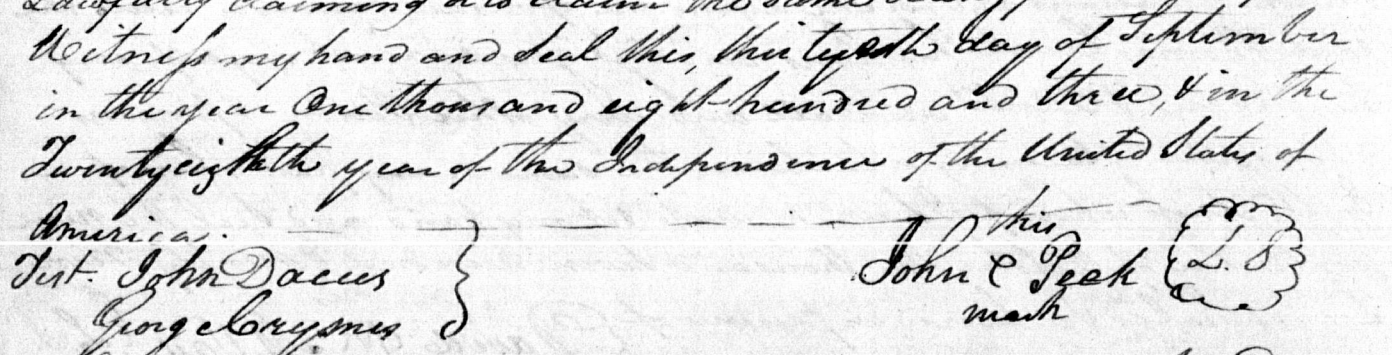 Lawfully claiming or to claim the same
Witness my hand and Seal this, thirtyeth day of September
in the year One thousand eight hundred and three, & in the
Twentyeighthth year of the Independence of the United States of
America.
his
Test. John Daccus } John C Peek L. S
George Crysmes mark